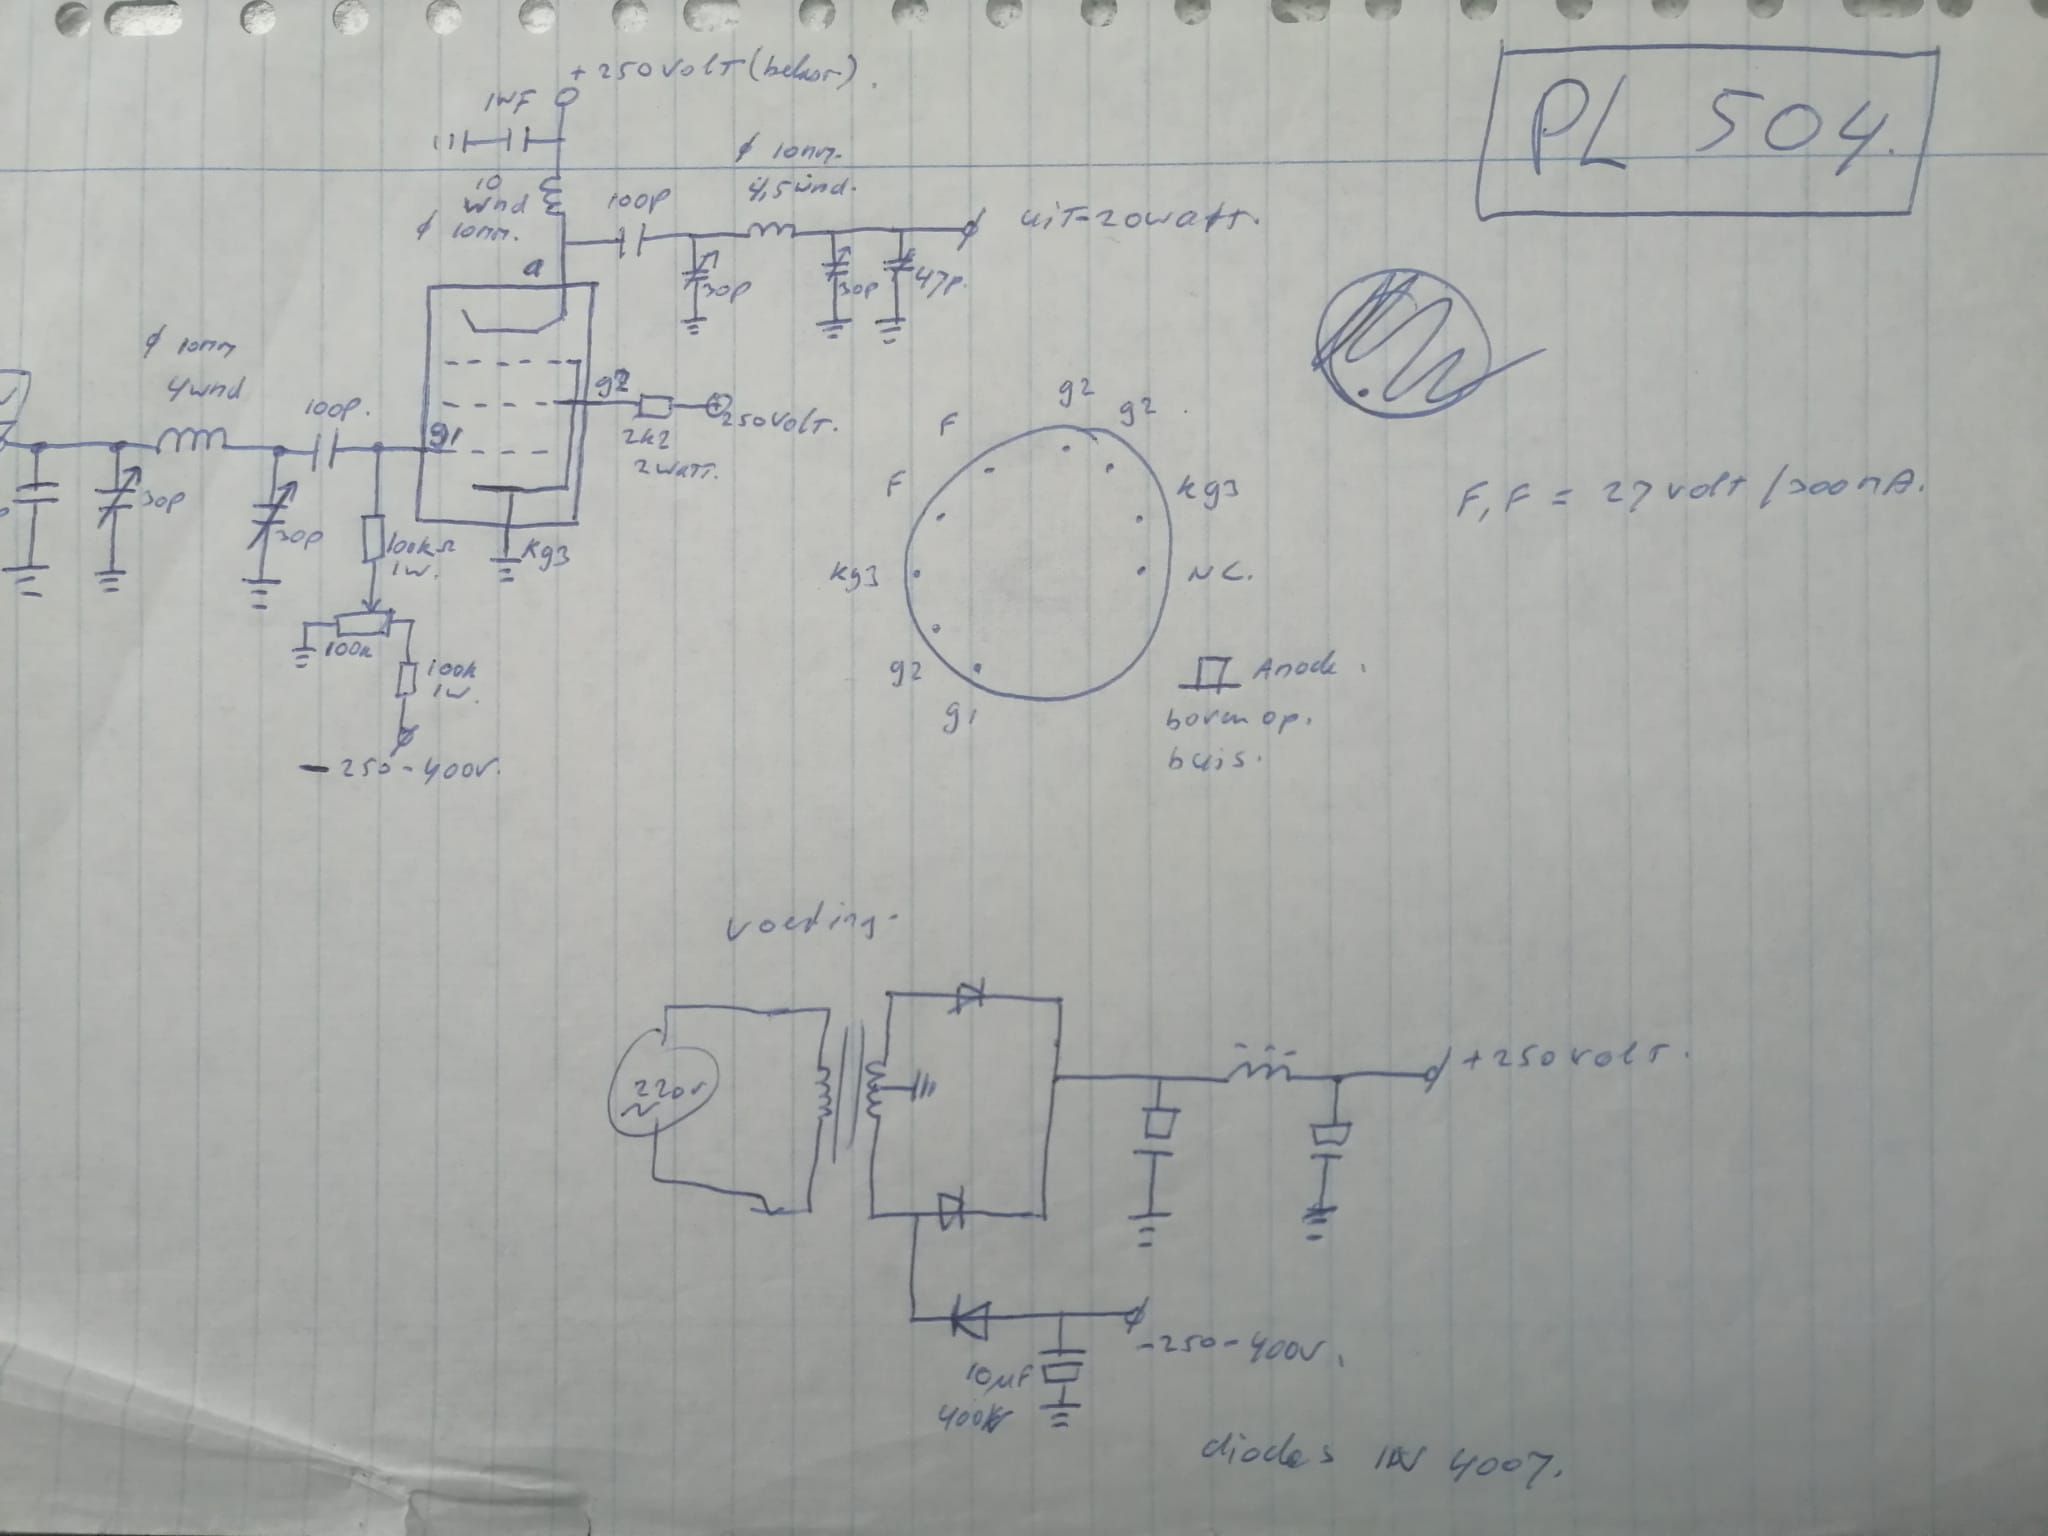 +250volt (belast).
1NF
PL 504.
10
wnd
φ 10mm.
φ 10mm.
4,5wnd.
100p
uit-20watt.
a
30p
30p
47p.
φ 10mm
4wnd
100p.
g1
g2
2k2
2watt.
250volt.
30p
30p
100kΩ
1w.
kg3
100k
100k
1w.
-250-400v.
g2
g2
F
F
kg3
kg3
NC.
g2
g1
Anode.
boven op.
buis.
F, F = 27volt/300mA.
voeding-
220v
~
+250volt.
-250-400v.
10µF
400V
diodes 1N 4007.